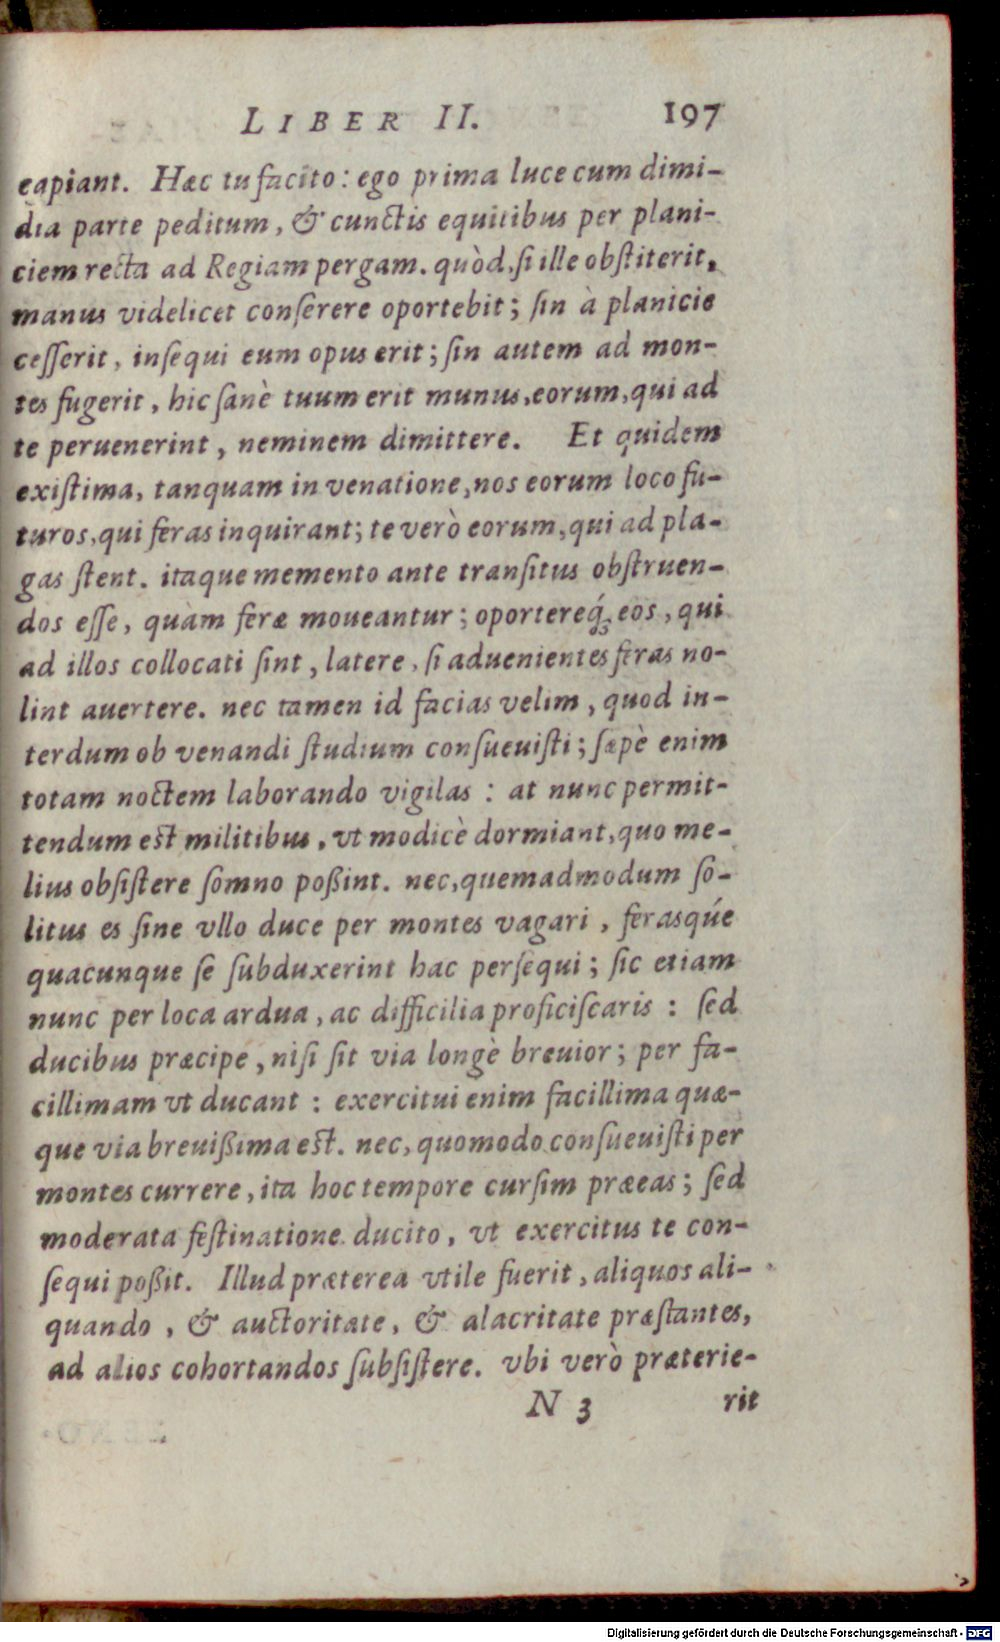 LIBER II. 197
capiant. Hæc tu facito: ego prima luce cum dimi-
dia parte peditum, & cunctis equitibus per plani-
ciem recta ad Regiam pergam. quòd, si ille obstiterit,
manus videlicet conserere oportebit; sin à planicie
cesserit, insequi eum opus erit; sin autem ad mon-
tes fugerit, hic sanè tuum erit munus, eorum, qui ad
te peruenerint, neminem dimittere. Et quidem
existima, tanquam in venatione, nos eorum loco fu-
turos, qui feras inquirant; te verò eorum, qui ad pla-
gas stent. itaque memento ante transitus obstruen-
dos esse, quàm feræ moueantur; oportereq́; eos, qui
ad illos collocati sint, latere, si aduenientes feras no-
lint auertere. nec tamen id facias velim, quod in-
terdum ob venandi studium consueuisti; sæpè enim
totam noctem laborando vigilas: at nunc permit-
tendum est militibus, vt modicè dormiant, quo me-
lius obsistere somno poßint. nec, quemadmodum so-
litus es sine vllo duce per montes vagari, ferasqúe
quacunque se subduxerint hac persequi; sic etiam
nunc per loca ardua, ac difficilia proficiscaris: sed
ducibus præcipe, nisi sit via longè breuior; per fa-
cillimam vt ducant: exercitui enim facillima quæ-
que via breuißima est. nec, quomodo consueuisti per
montes currere, ita hoc tempore cursim præeas; sed
moderata festinatione ducito, vt exercitus te con-
sequi poßit. Illud præterea vtile fuerit, aliquos ali-
quando, & auctoritate, & alacritate præstantes,
ad alios cohortandos subsistere. vbi verò præterie-
N 3 rit
Digitalisierung gefördert durch die Deutsche Forschungsgemeinschaft - DFG